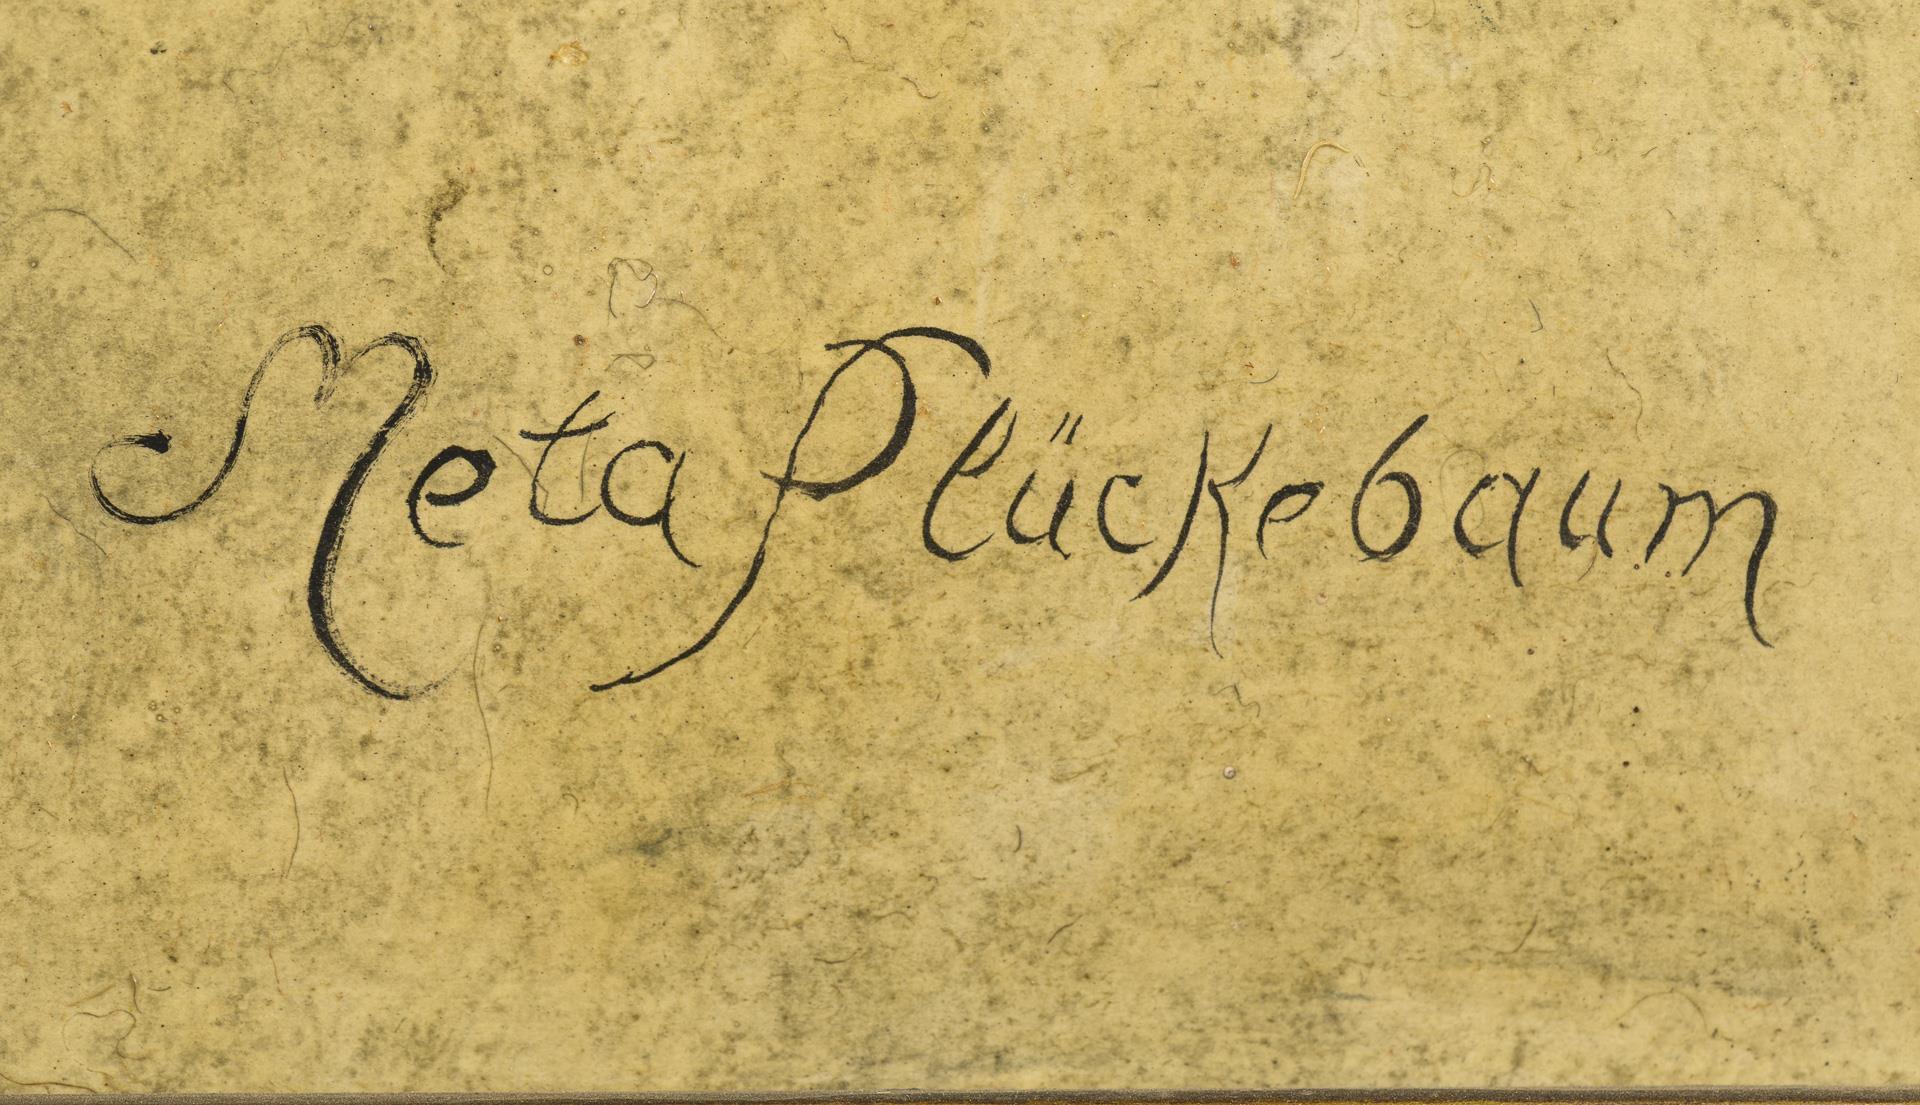 Meta Plückebaum